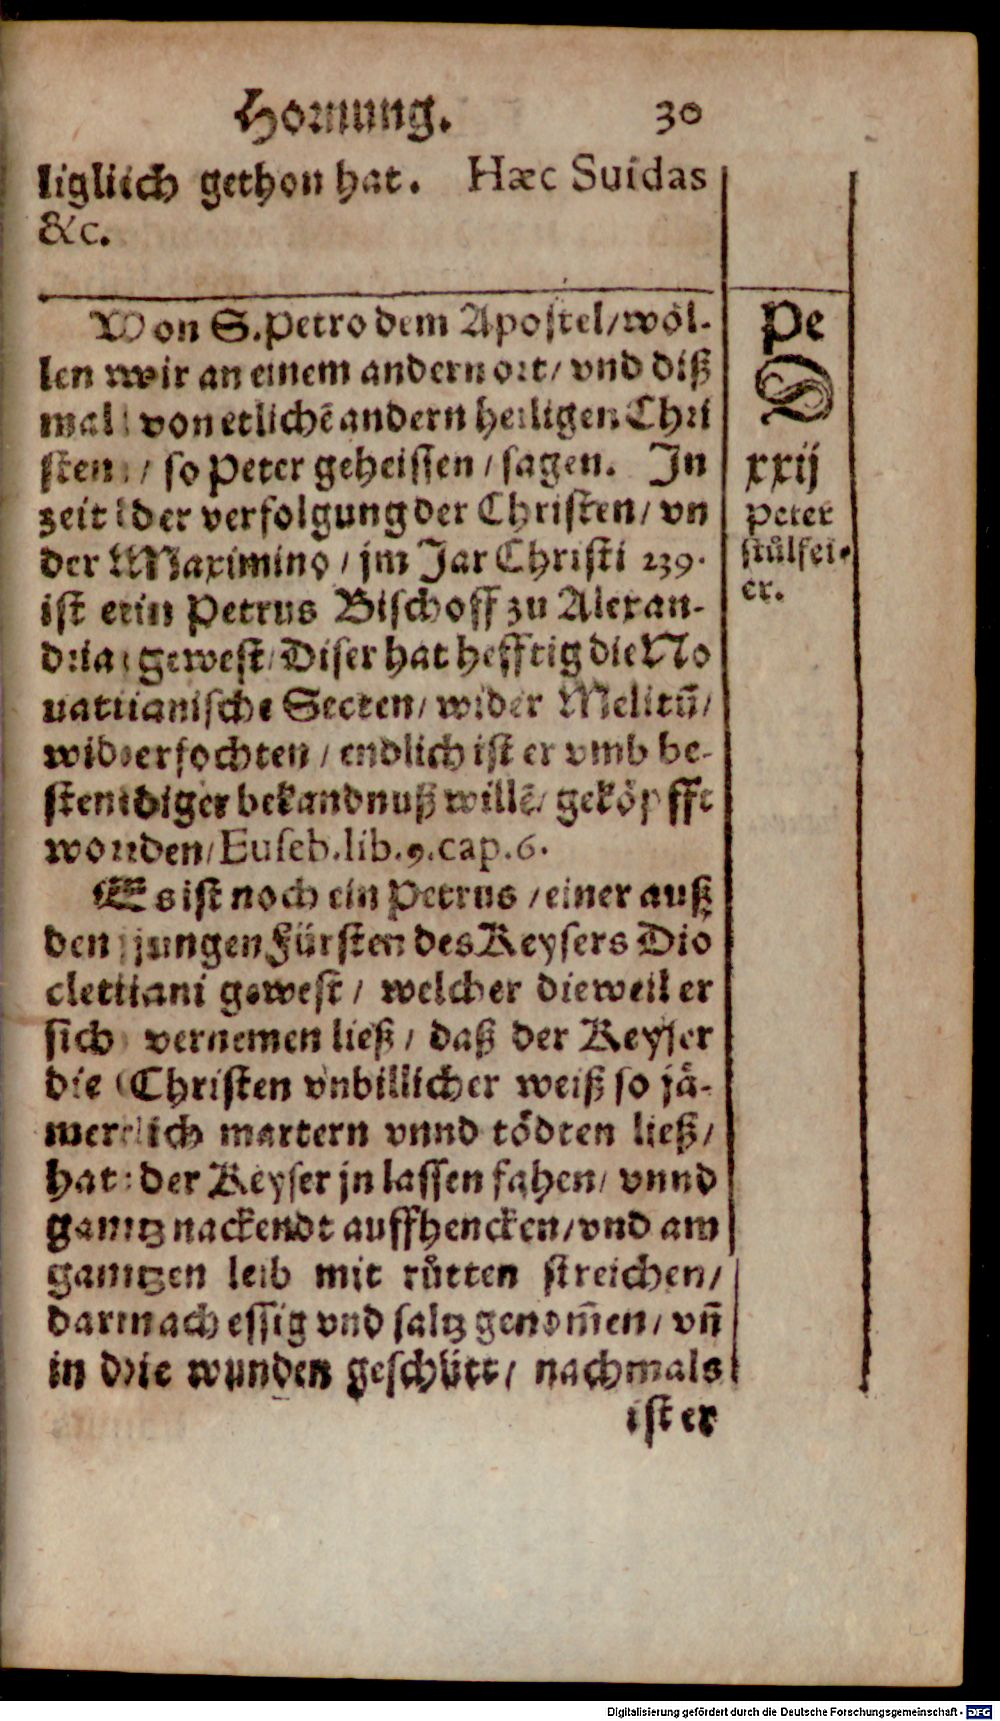 Hornung. 30
liglich gethon hat. Hæc Suidas
&c.
Von S. Petro dem Apostel/ wöl-
len wir an einem andern ort/ vnd diß
mal von etlichē andern heiligen Chri
sten/ so Peter geheissen/ sagen. In
zeit der verfolgung der Christen/ vn
der Maximino/ jm Jar Christi 239.
ist ein Petrus Bischoff zu Alexan-
dria gewest/ Diser hat hefftig die No
uatianische Secten/ wider Melitū/
widerfochten/ endlich ist er vmb be-
stendiger bekandnuß willē/ geköpfft
worden/ Euseb.lib.9.cap.6.
Es ist noch ein Petrus/ einer auß
den jungen Fürsten des Keysers Dio
cletiani gewest/ welcher dieweil er
sich vernemen ließ/ daß der Keyser
die Christen vnbillicher weiß so jä-
merlich martern vnnd tödten ließ/
hat der Keyser jn lassen fahen/ vnnd
gantz nackendt auffhencken/ vnd am
gantzen leib mit růtten streichen/
darnach essig vnd saltz genom̄en/ vn̄
in die wunden geschütt/ nachmals
ist er
Pe
D
xxij
Peter
stůlfei-
er.
Digitalisierung gefördert durch die Deutsche Forschungsgemeinschaft - DFG